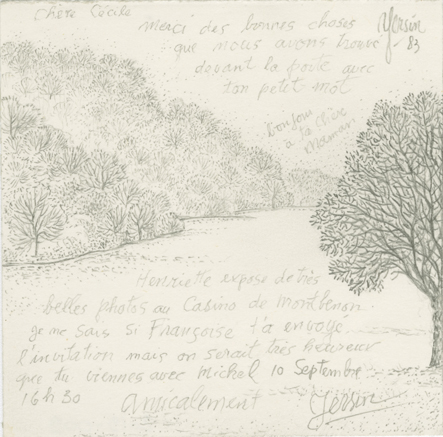 Chère Cécile
merci des bonnes choses
que nous avons trouvé
devant la porte avec
ton petit mot
Yersin
83
Bonjour
à ta chère
Maman
Henriette expose de très
belles photos au Casino de Montbenon
je ne sais si Françoise t'a envoyé
l'invitation mais on serait très heureux
que tu viennes avec Michel 10 Septembre
16h30
amicalement Yersin